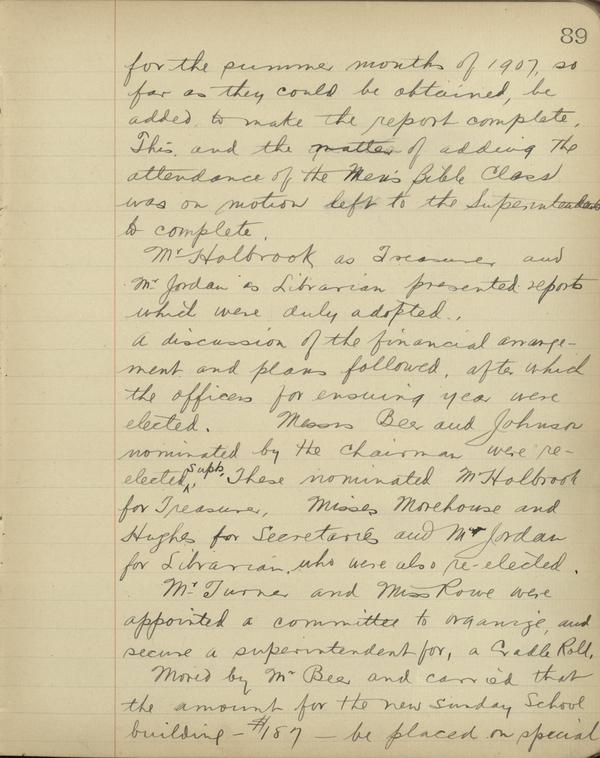 89
for the summer months of 1907, so
far as they could be obtained, be
added to make the report complete.
This and the matter of adding the
attendance of the Men's Bible Class
was on motion left to the Superintendents
to complete.
Mr Holbrook as Treasurer and
Mr Jordan as Librarian presented reports
which were duly adopted.
A discussion of the financial arrange-
ment and plans followed, after which
the officers for ensuing year were
elected. Messrs Beer and Johnson
nominated by the Chairman were re-
elected Supts. These nominated Mr Holbrook
for Treasurer, Misses Morehouse and
Hughes for Secretaries and Mr Jordan
for Librarian, who were also re-elected.
Mr Turner and Miss Rowe were
appointed a committee to organize, and
secure a superintendent for, a Cradle Roll.
Moved by Mr Beer and carried that
the amount for the new Sunday School
building - $187 - be placed on special